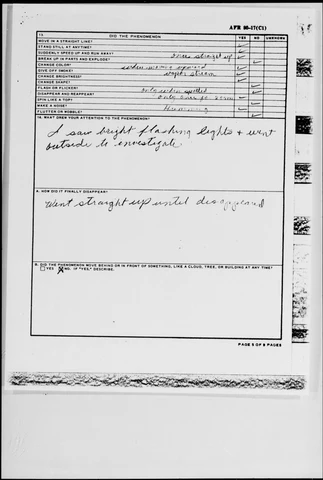 AFR 80-17(C1)
13. DID THE PHENOMENON YES NO UNKNOWN
MOVE IN A STRAIGHT LINE? ✓
STAND STILL AT ANYTIME? ✓
SUDDENLY SPEED UP AND RUN AWAY? straight up ✓
BREAK UP IN PARTS AND EXPLODE? ✓
CHANGE COLOR? when moving upward ✓
GIVE OFF SMOKE? vapor stream ✓
CHANGE BRIGHTNESS? ✓
CHANGE SHAPE? ✓
FLASH OR FLICKER? when spotted ✓
DISAPPEAR AND REAPPEAR? only ✓
SPIN LIKE A TOP? ✓
MAKE A NOISE? Humming ✓
FLUTTER OR WOBBLE? ✓
14. WHAT DREW YOUR ATTENTION TO THE PHENOMENON?
I saw bright flashing lights + went
outside to investigate.
A. HOW DID IT FINALLY DISAPPEAR?
Went straight up until disappeared
B. DID THE PHENOMENON MOVE BEHIND OR IN FRONT OF SOMETHING, LIKE A CLOUD, TREE, OR BUILDING AT ANY TIME?
YES NO. IF "YES," DESCRIBE.
PAGE 5 OF 9 PAGES